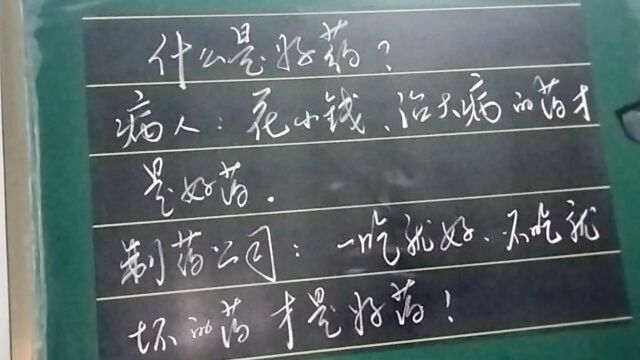 什么是好药？
病人：花小钱、治大病的药才
是好药．
制药公司：一吃就好、不吃就
坏的药才是好药！